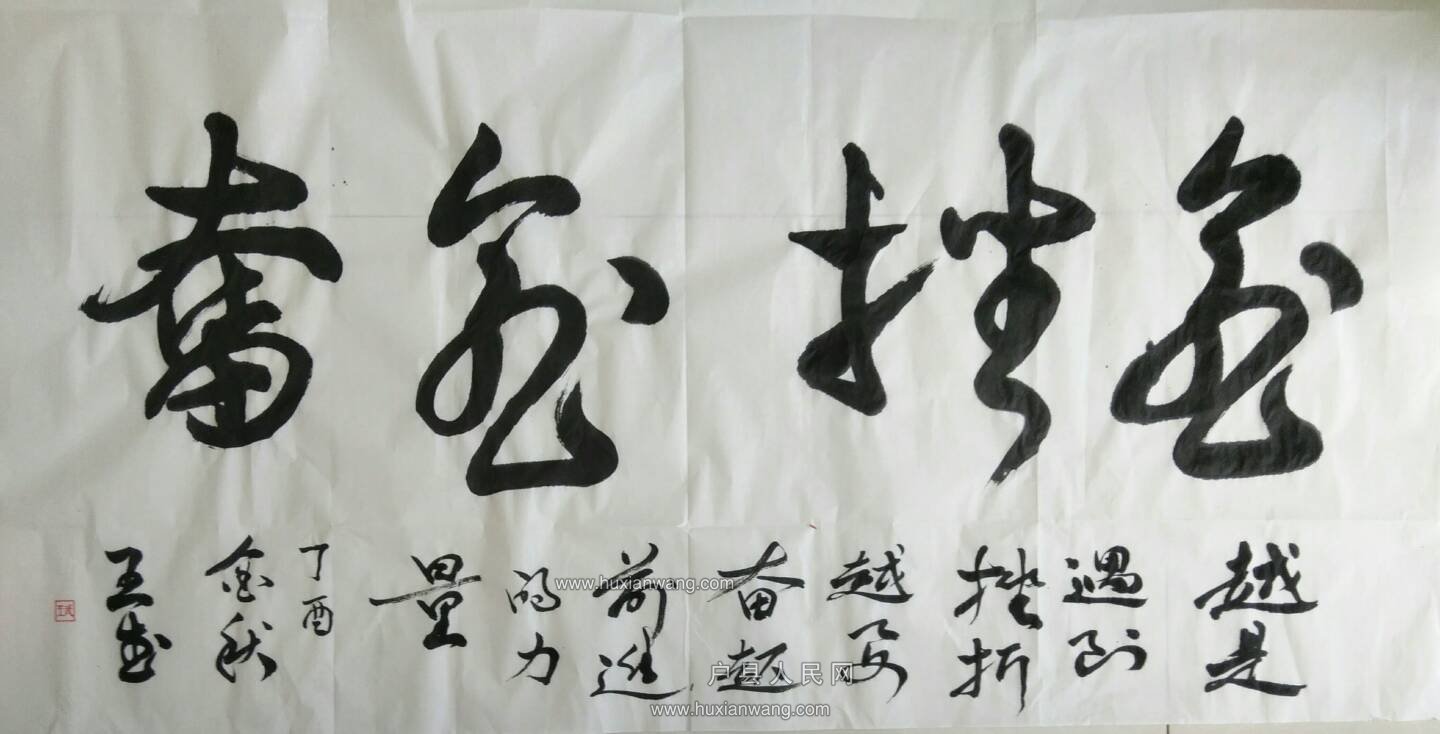 愈挫愈奮
越是
遇到
挫折
越要
奋起
前進
的力
量
丁酉
金秋
王武
www.huxianwang.com
户县人民网
www.huxianwang.com